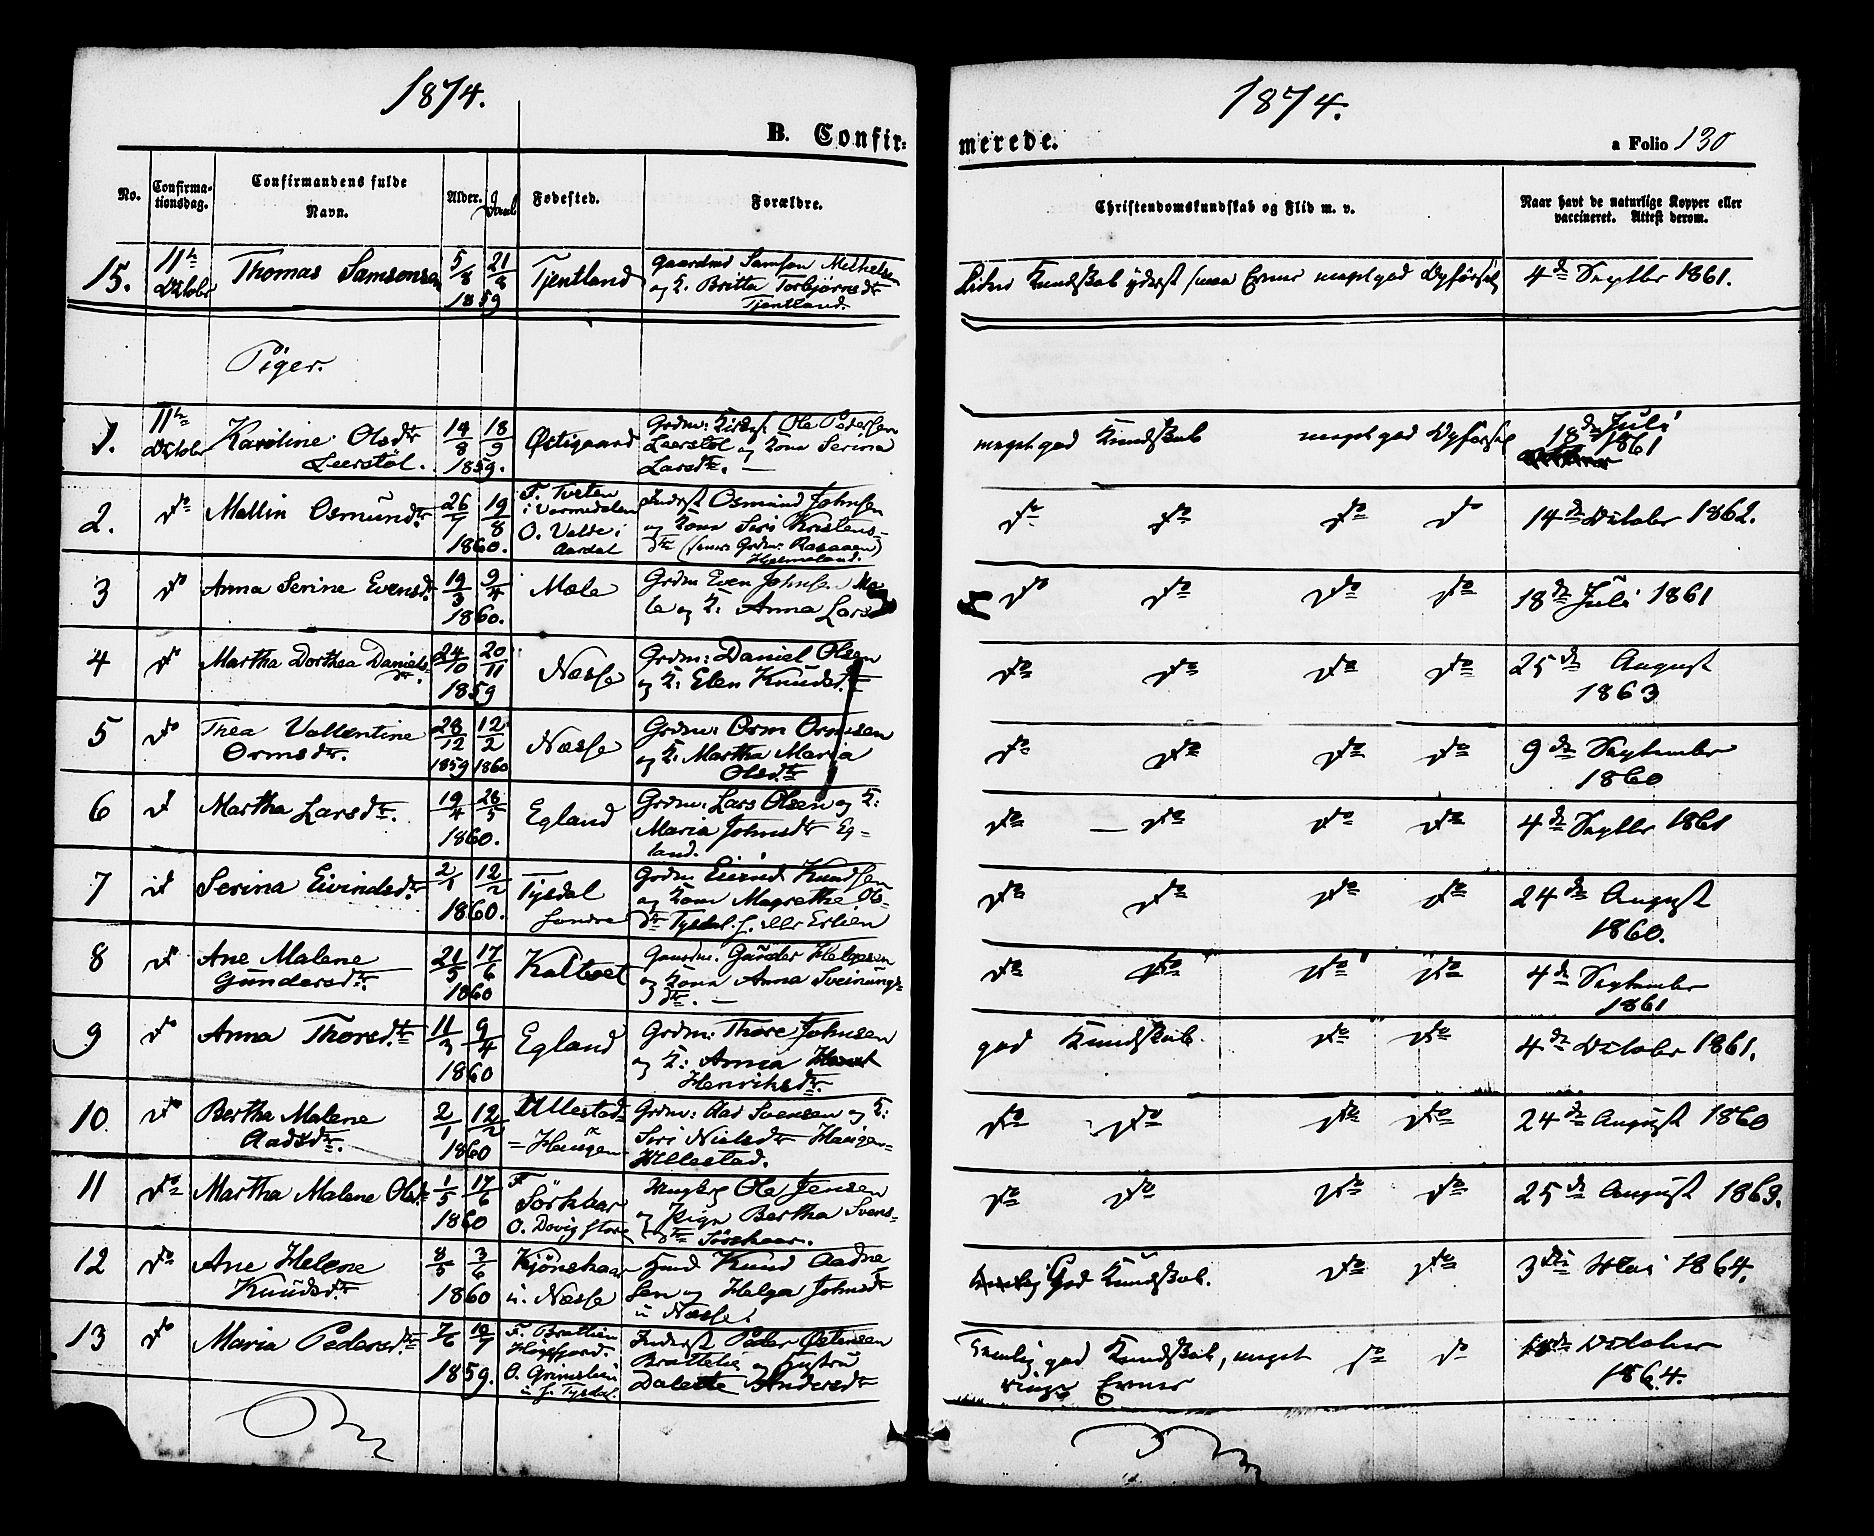 1874.
1874.
B. Confir-
merede.
a Folio 130
No.
Confirma-
tionsdag.
Confirmandens fulde
Navn.
Alder.
Daab
Fødested.
Forældre.
Christendomskundskab og Flid m. v.
Naar havt de naturlige Kopper eller
vaccineret. Attest derom.
15. 11te Octobr Thomas Samsonsen 5/8 21/8 1859 Tjentland
Gaardmd Samson Methelsen
og K. Britta Torbjørnsdtr
Tjentland
Liden Kundskab yderst smaa Evner meget god Opførsel 4de Septbr 1861.
Piger.
1. 11te Octobr Karoline Olsdtr
Leerstøl. 18/9 1859. Østigaard
Grdm: Kirkes. Ole Pedersen
Leerstøl og Kone Serina
Larsdtr. —
meget god Kundskab meget god Opførsel 18de Juli
1861
2. do Mallin Osmundsdtr. 26/7 19/8 1860.
F. Tveten
i Vormedalen
O. Valde i
Aardal
Inderst Osmund Johnsen
og Kone Siri Kristens-
dtr
Hjelmeland.
do do do do 14de Octobr 1862.
3 do Anna Serine Evensdtr. 19/3 9/4 1860. Mæle
Grdm Even Johnsen Mæ-
le og K. Anna Lars
do do do do 18de Juli 1861
4 do Martha Dorthea Daniels-
dtr. 24/10 20/11 1859 Næsse
Grdm: Daniel Olsen
og K. Elen Knudsdtr
do do do do 25de August
1863
5 do Thea Vallentine
Ormsdtr. 28/12 1859 12/2 1860 Næsse
Grdm: Orm Ormsen
og K. Martha Maria
Olsdtr
do do do do 9de September
1860
6 d Martha Larsdtr. 19/4 28/5 1860. Egland
Grdm: Lars Olsen og K:
Maria Johnsdtr Eg-
land.
do do do do 4de Septbr 1861
7 d Serina Eivindsdtr. 2/1 12/2 1860. Tysdal
Søndre
Grdm: Eivind Knudsen
og Kone Magrethe Ols-
dtr Tysdal S. eller Erlien
do do do do 24de August
1860.
8 d Ane Malene
Gundersdtr. 21/5 17/6 1860 Kaltvet
Gaardm. Gunder Helgesen
og Kone Anna Sveinungs-
dtr. —
do do do do 4de September
1861
9 do Anna Thoresdtr. 11/3 9/4 1860 Egland
Grdm: Thore Johnsen
og K: Anna
Henriksdtr.
god Kundskab. do do 4de Octobr 1861.
10. do Bertha Malene
Aadsdtr. 2/1 12/2 1860 Ullestad-
=Haugen
Grdm: Aad Svensen og K:
Siri Nielsdtr Haugen-
Ullestad.
do do do do 24de August 1860
11 do Martha Malene Olsdtr 1/5 17/6 1860
F
Sørskaar
O. Dovig store
Ungkrl Ole Jensen
og Pige Bertha Svens-
dtr Sørskaar.
do do do do 25de August 1863.
12 do Ane Helene
Knudsdtr. 8/5 3/6 1860 Kjönskaar
u. Næsse
Hmd Knud Aadne-
sen og Helga Johnsdtr
u Næsse.
God Kundskab. do do 3die Mai 1864.
13 do Maria Pedersdtr. 7/6 1859.
F. Bratlien
Høgsfjord.
O. Grimslien
u S. Tysdal.
Inderst Peder Østensen
Brattelie og Hustru
Dalette Andersdtr
Temlig god Kundskab, meget
ringe Evner do do October
1864.